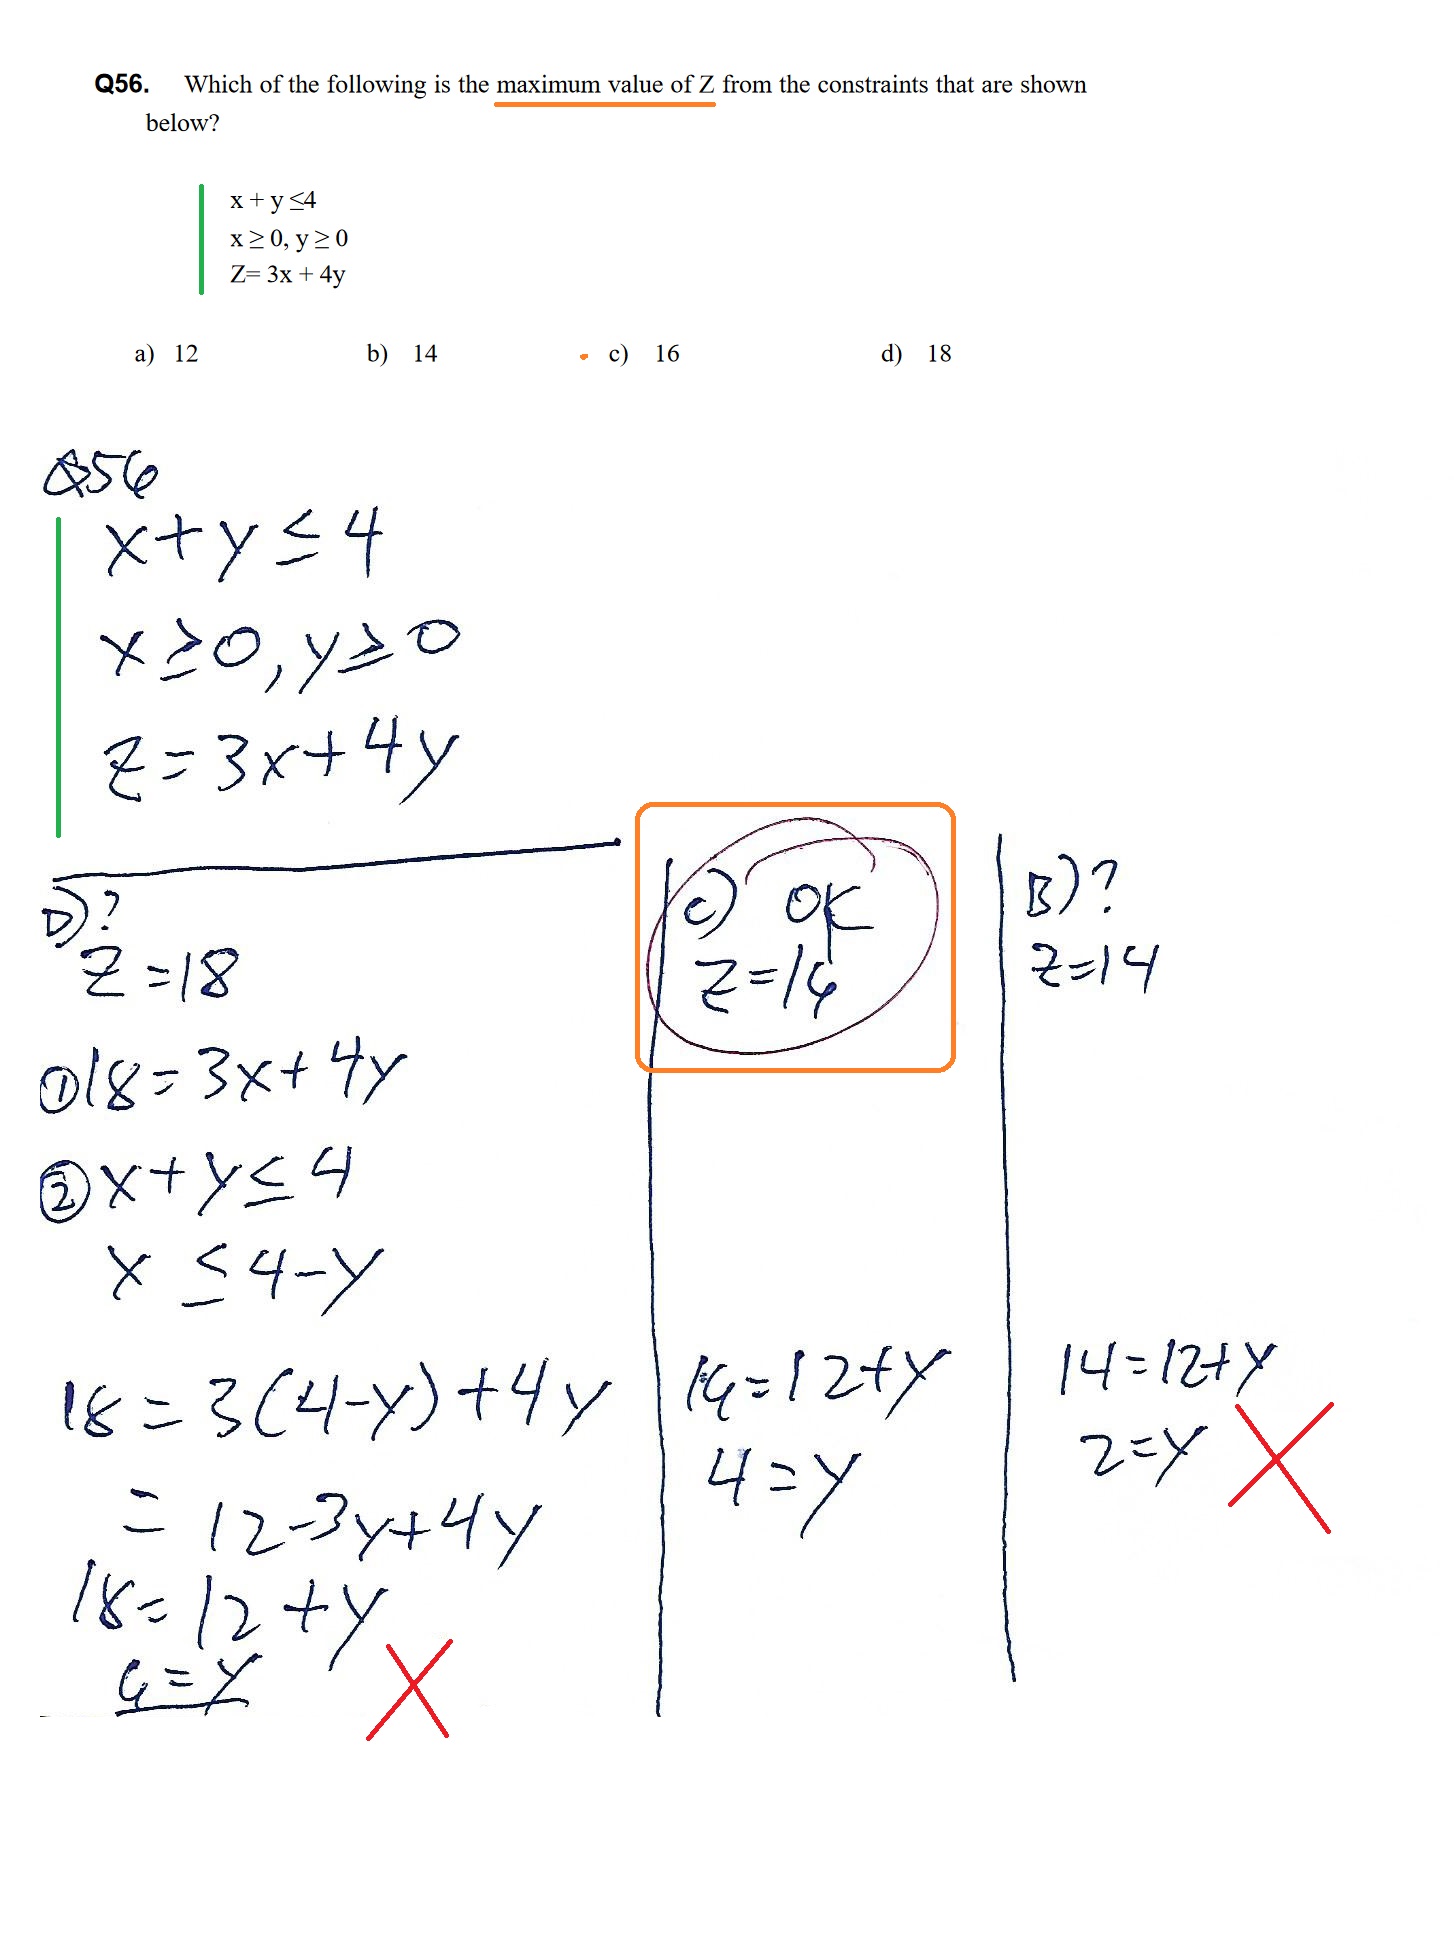 Q56. Which of the following is the maximum value of Z from the constraints that are shown
below?
x + y ≤4
x ≥ 0, y ≥ 0
Z= 3x + 4y
a) 12 b) 14 c) 16 d) 18
Q56
x+y≤4
x≥0, y≥0
Z=3x+4y
D)?
Z=18
①18=3x+4y
②x+y≤4
x ≤4-y
18=3(4-y)+4y
= 12-3y+4y
18=12+y
6=y
C) OK
Z=16
16=12+y
4=y
B)?
Z=14
14=12+y
2=y